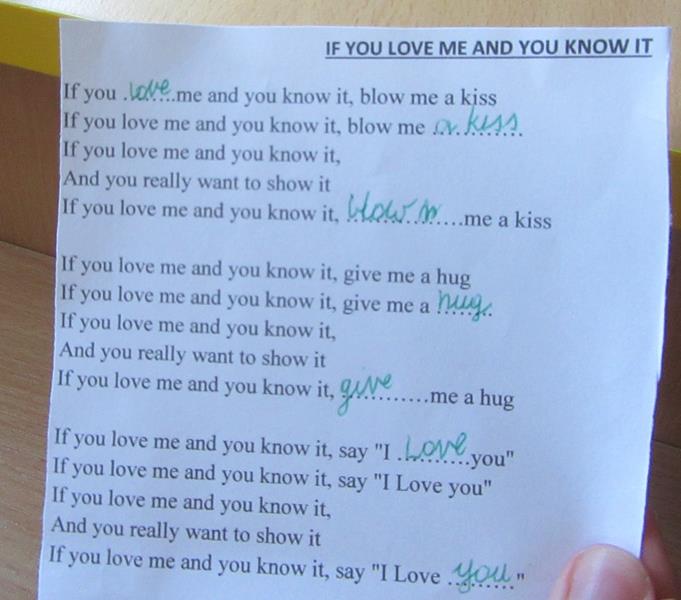 IF YOU LOVE ME AND YOU KNOW IT
If you .love...me and you know it, blow me a kiss
If you love me and you know it, blow me a kiss
If you love me and you know it,
And you really want to show it
If you love me and you know it, blow m....me a kiss
If you love me and you know it, give me a hug
If you love me and you know it, give me a hug.
If you love me and you know it,
And you really want to show it
If you love me and you know it, give..........me a hug
If you love me and you know it, say "I .Love.you"
If you love me and you know it, say "I Love you"
If you love me and you know it,
And you really want to show it
If you love me and you know it, say "I Love .you."